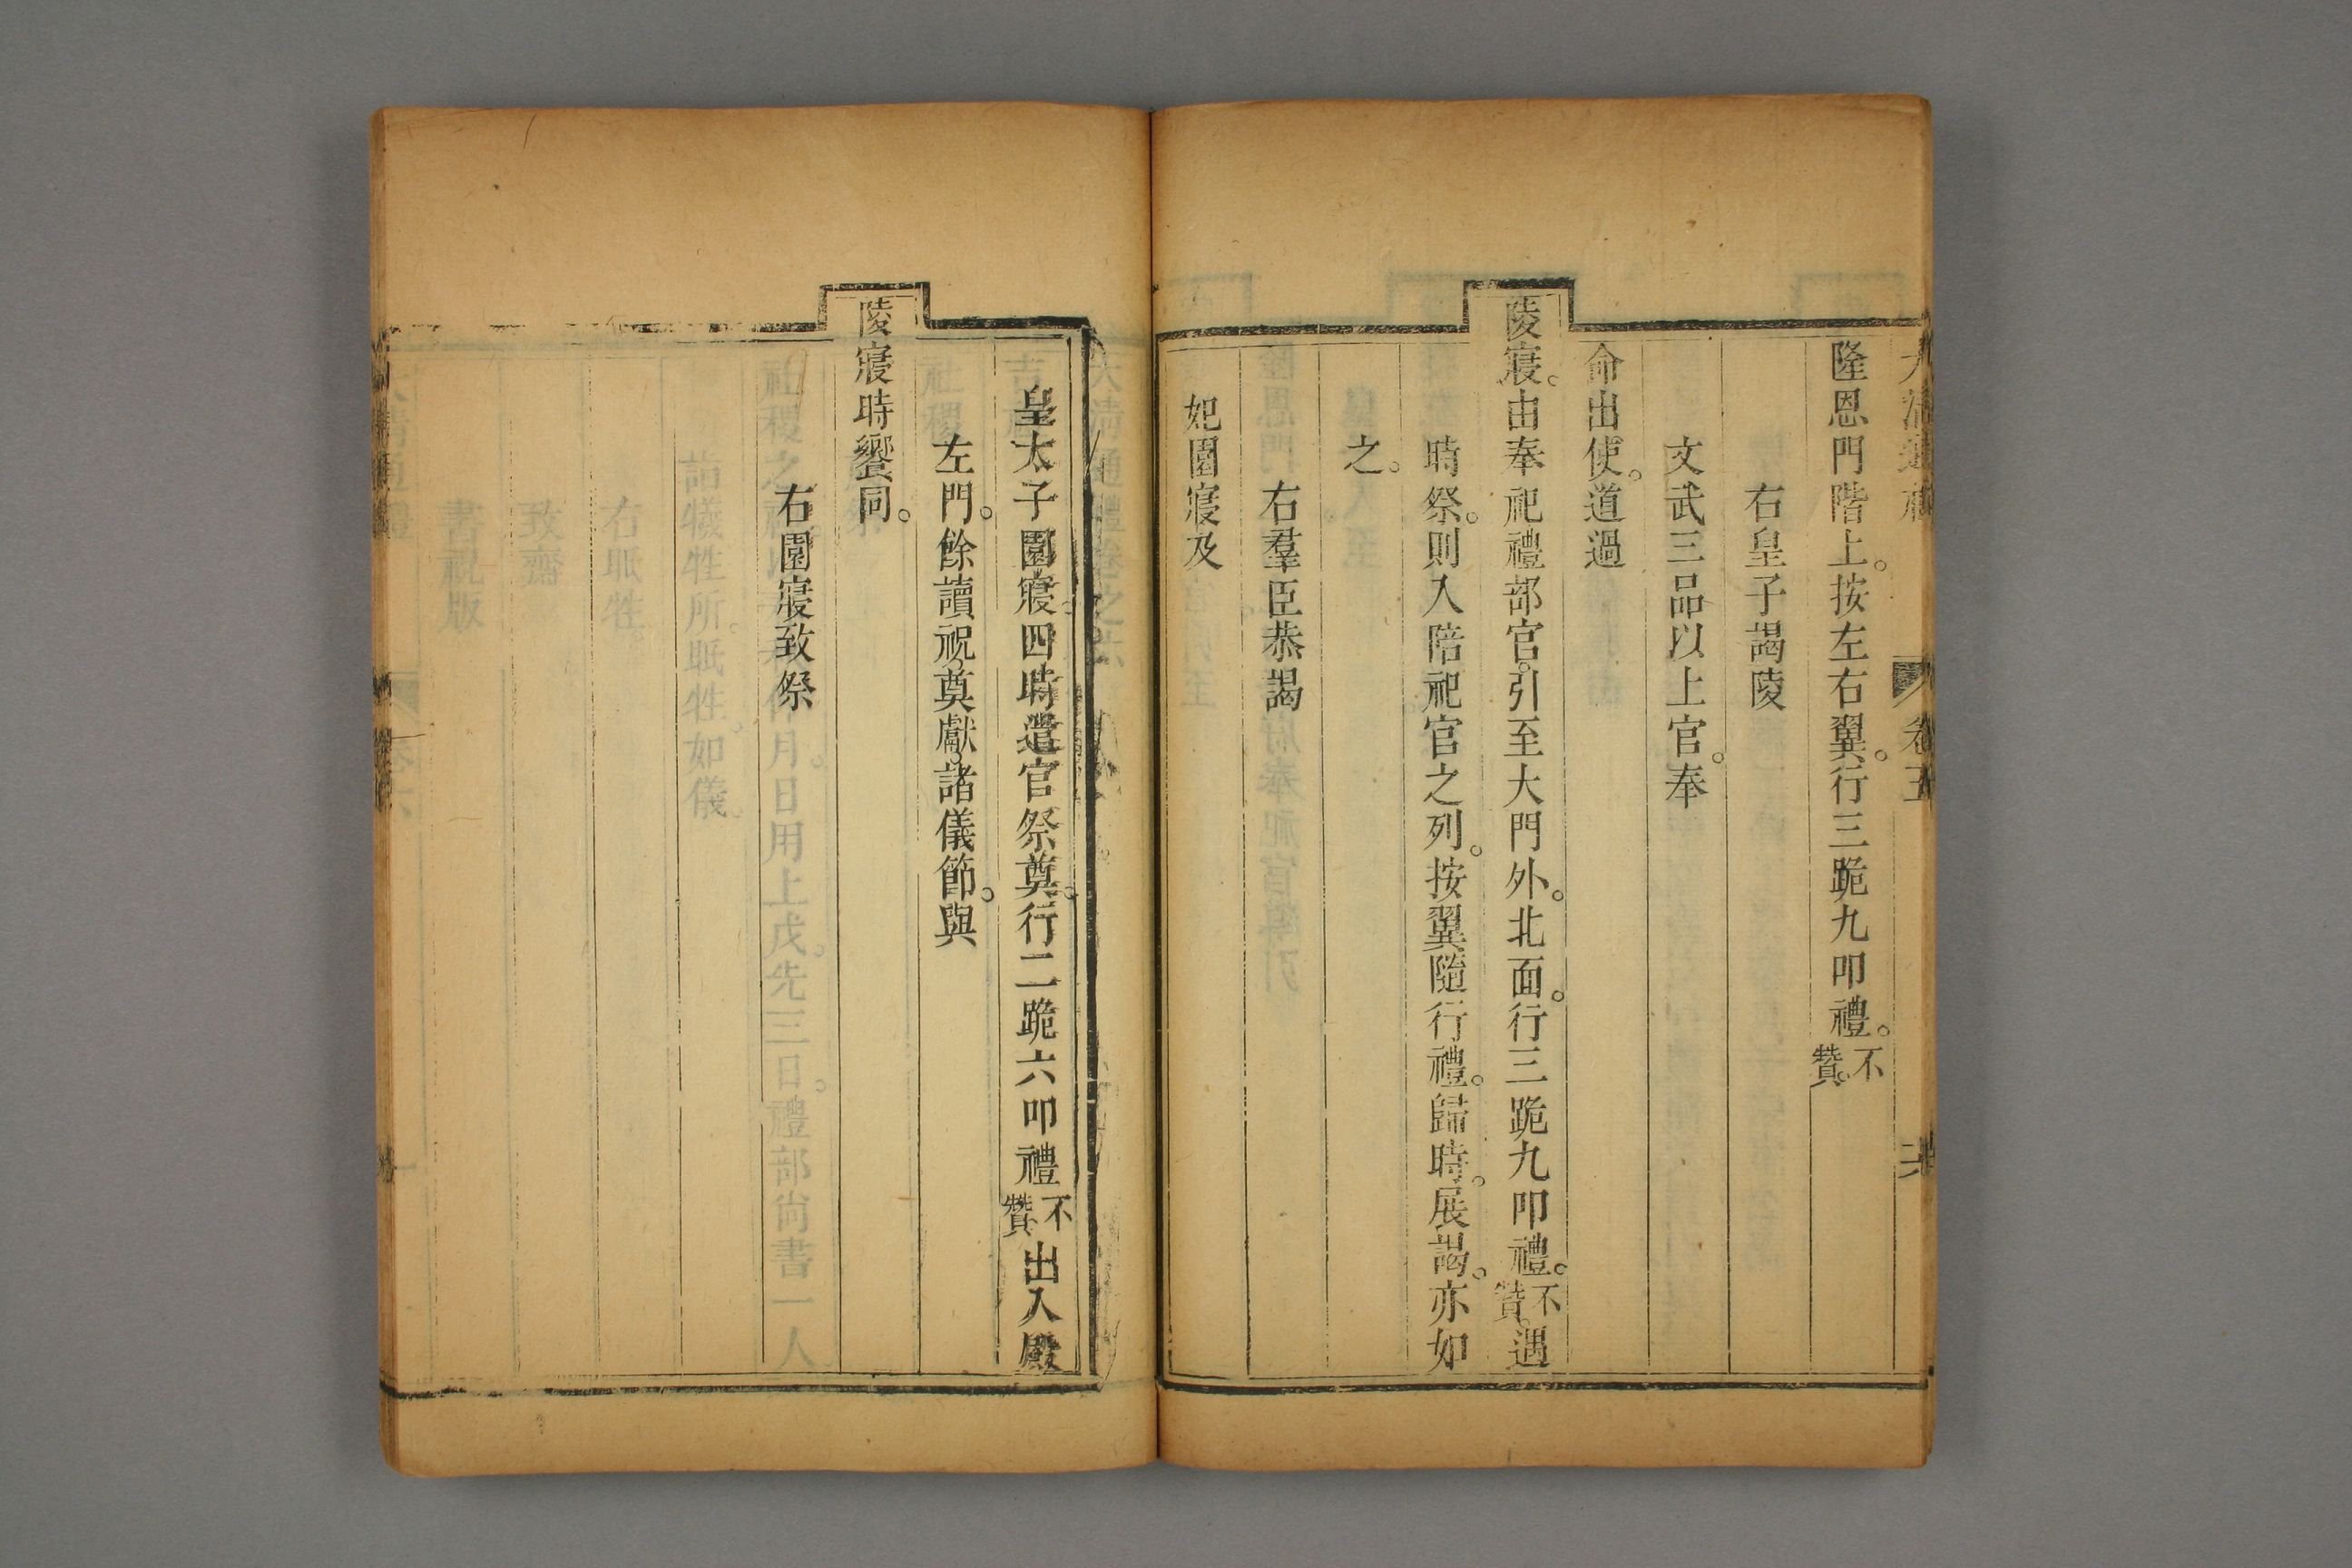 隆恩門階上。按左右翼。行三跪九叩禮。不贊。
右皇子謁陵
文武三品以上官。奉
命出使。道過
陵寢。由奉祀禮部官。引至大門外。北面。行三跪九叩禮。不贊。遇
時祭。則入陪祀官之列。按翼隨行禮。歸時。展謁。亦如
之。
右羣臣恭謁
妃園寢及
皇太子園寢。四時遣官祭奠。行二跪六叩禮不贊出入殿
左門。餘讀祝。奠獻。諸儀節。與
陵寢時饗同。
右園寢致祭